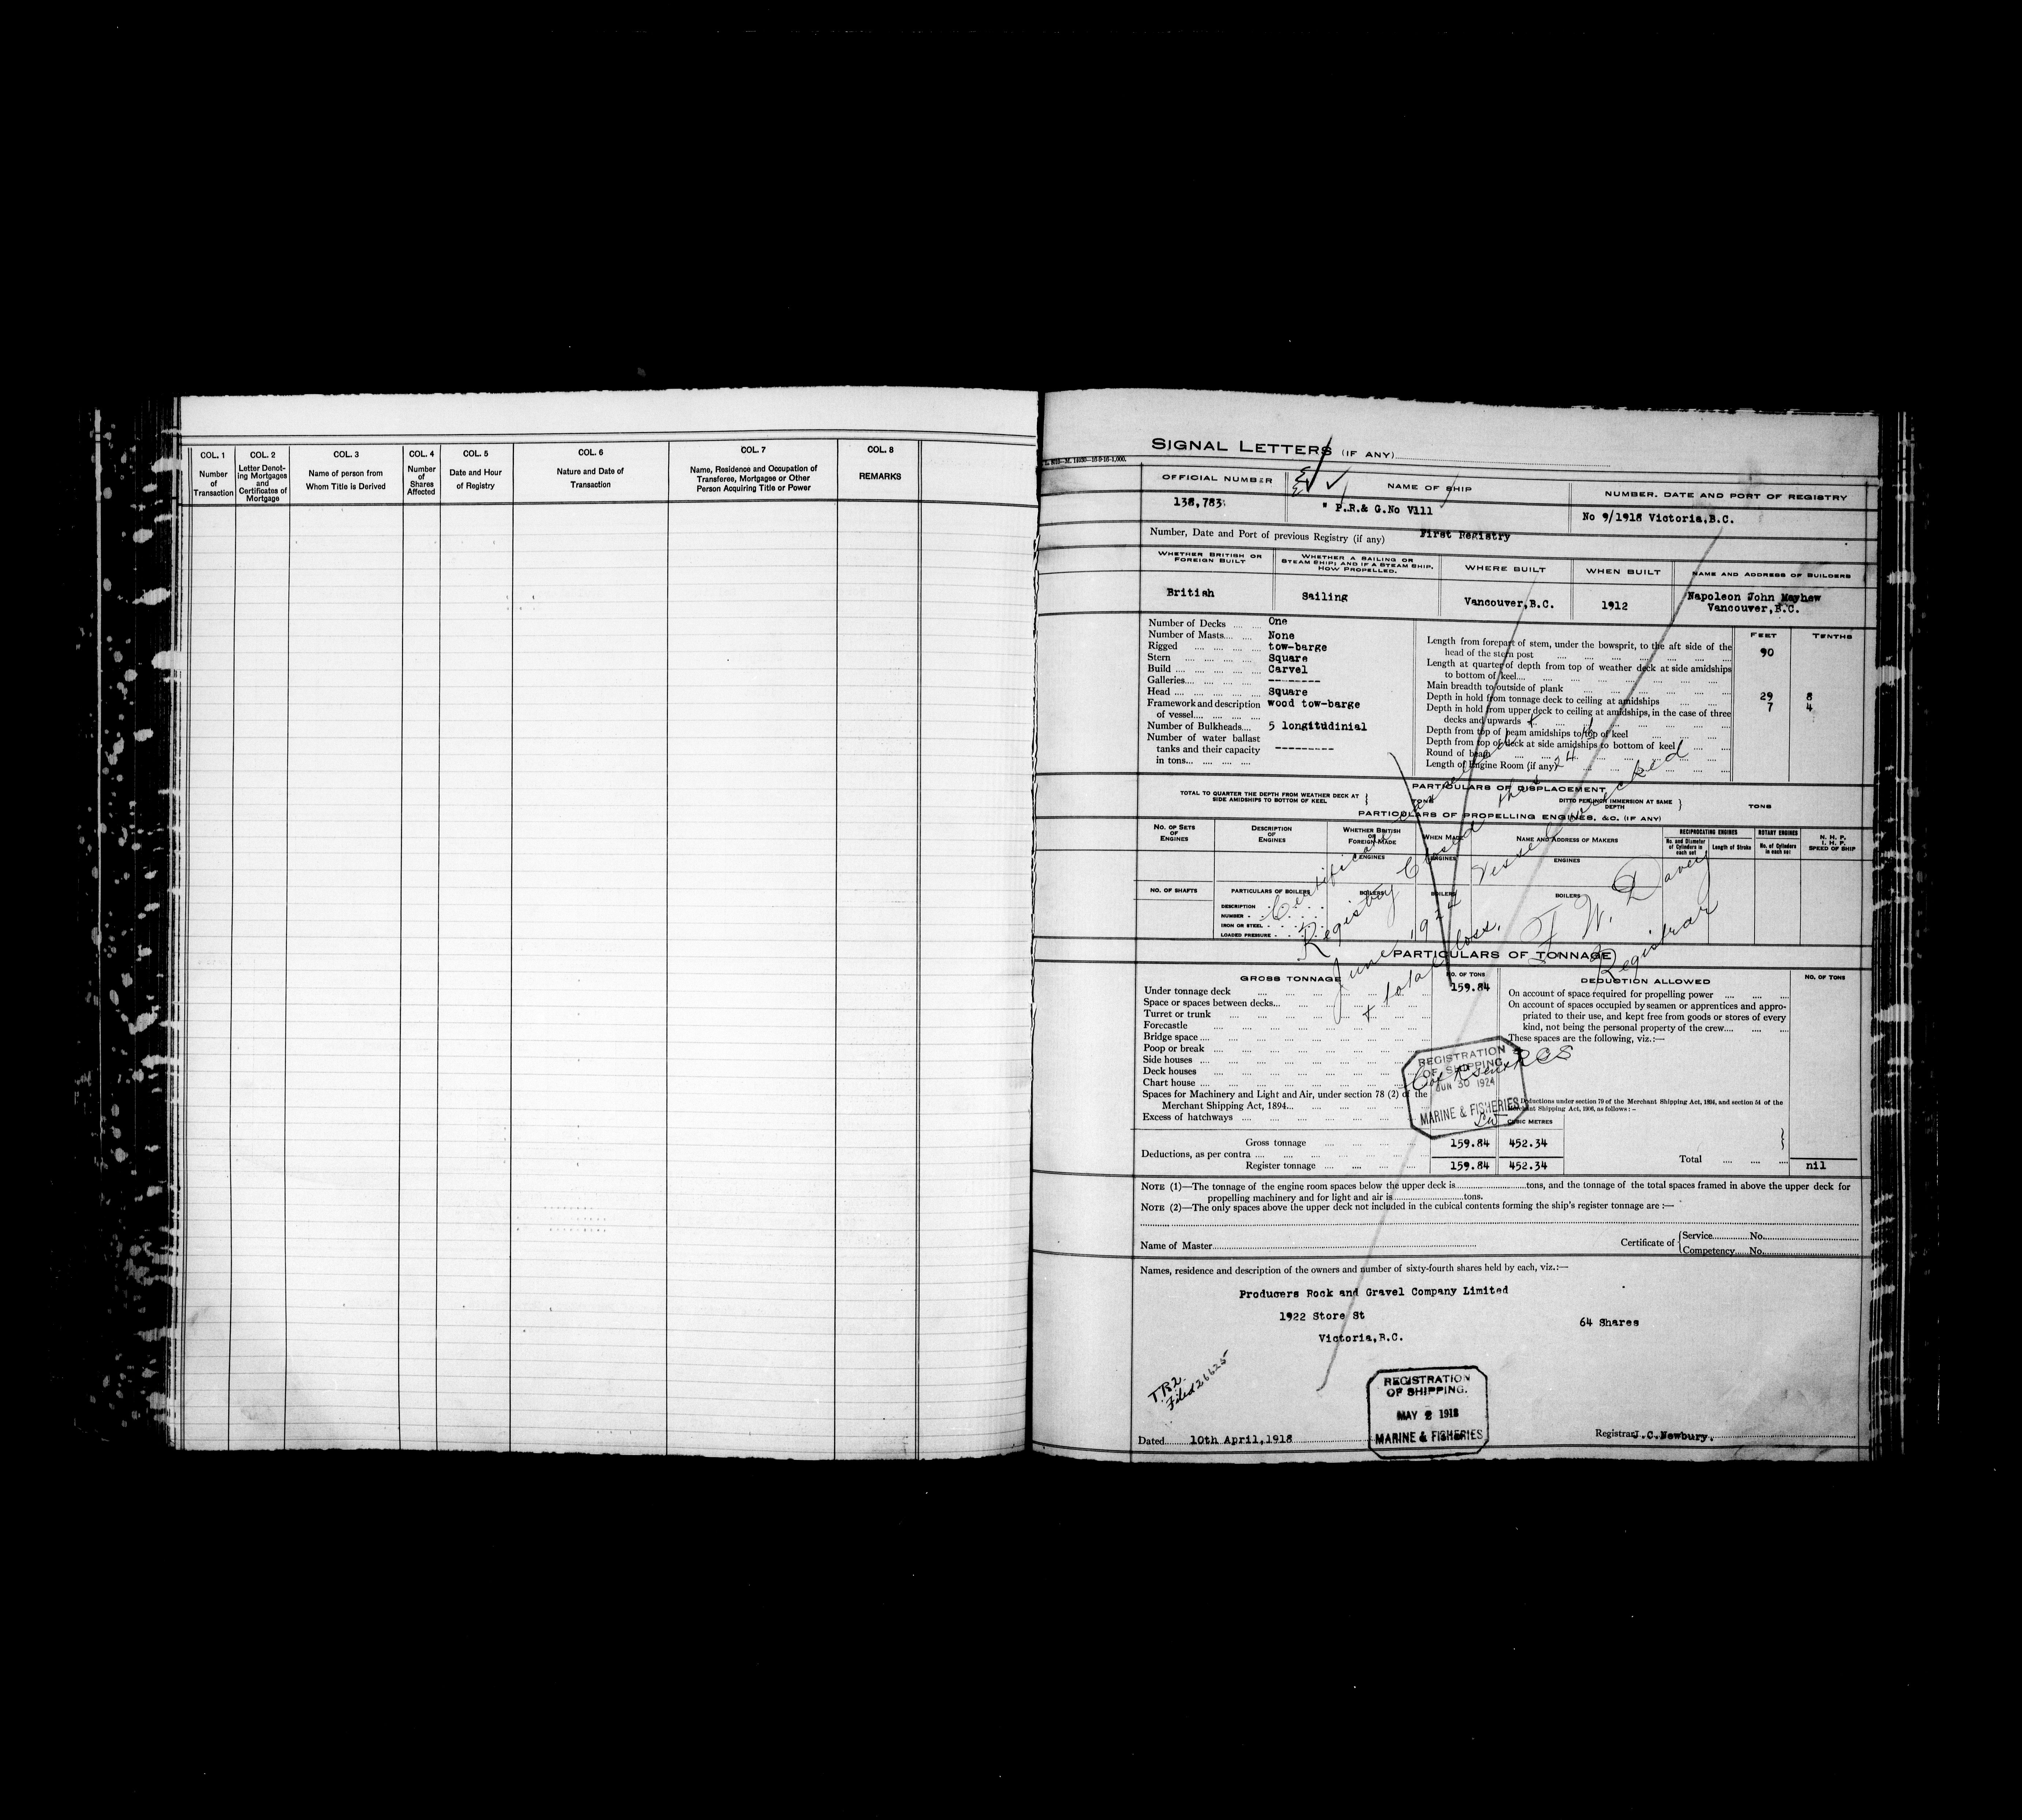 COL. 1
Number
of
Transaction
COL. 2
Letter Denot-
ing Mortgages
and
Certificates of
Mortgage
COL. 3
Name of person from
Whom Title is Derived
COL. 4
Number
of
Shares
Affected
COL. 5
Date and Hour
of Registry
COL. 6
Nature and Date of
Transaction
COL. 7
Name, Residence and Occupation of
Transferee, Mortgagee or Other
Person Acquiring Title or Power
COL. 8
REMARKS
SIGNAL LETTERS (IF ANY)
OFFICIAL NUMBER
NAME OF SHIP
NUMBER, DATE AND PORT OF REGISTRY
138,783
" P.R.& G.No Vlll
No 9/1918 Victoria,B.C.
Number, Date and Port of previous Registry (if any) First Registry
WHETHER BRITISH OR
FOREIGN BUILT
WHETHER A SAILING OR
STEAM SHIP; AND IF A STEAM SHIP,
HOW PROPELLED.
WHERE BUILT
WHEN BUILT
NAME AND ADDRESS OF BUILDERS
British
Sailing
Vancouver,B.C.
1912
Napoleon John Mayhew
Vancouver,B.C.
Number of Decks One
Number of Masts None
Rigged tow-barge
Stern Square
Build Carvel
Galleries --------
Head Square
Framework and description wood tow-barge
of vessel
Number of Bulkheads 5 longitudinial
Number of water ballast
tanks and their capacity ---------
in tons
FEET TENTHS
Length from forepart of stem, under the bowsprit, to the aft side of the
head of the stern post 90
Length at quarter of depth from top of weather deck at side amidships
to bottom of keel
Main breadth to outside of plank 29 8
Depth in hold from tonnage deck to ceiling at amidships 7 4
Depth in hold from upper deck to ceiling at amidships, in the case of three
decks and upwards
Depth from top of beam amidships to top of keel
Depth from top of deck at side amidships to bottom of keel
Round of beam
Length of Engine Room (if any)
PARTICULARS OF DISPLACEMENT
TOTAL TO QUARTER THE DEPTH FROM WEATHER DECK AT
SIDE AMIDSHIPS TO BOTTOM OF KEEL
TONS
DITTO PER INCH IMMERSION AT SAME
DEPTH
TONS
PARTICULARS OF PROPELLING ENGINES, &C. (IF ANY)
NO. OF SETS
OF
ENGINES
DESCRIPTION
OF
ENGINES
WHETHER BRITISH
OR
FOREIGN MADE
WHEN MADE
NAME AND ADDRESS OF MAKERS
RECIPROCATING ENGINES
No. and Diameter
of Cylinders in
each set
Length of Stroke
ROTARY ENGINES
No. of Cylinders
in each set
N. H. P.
I. H. P.
SPEED OF SHIP
ENGINES
ENGINES
ENGINES
NO. OF SHAFTS
PARTICULARS OF BOILERS
BOILERS
BOILERS
BOILERS
DESCRIPTION
NUMBER
IRON OR STEEL
LOADED PRESSURE
Certificate
Registry Closed this 24th
June 1924 Vessel wrecked
+ total loss.
F W. Davey
Registrar
PARTICULARS OF TONNAGE
GROSS TONNAGE
NO. OF TONS
DEDUCTION ALLOWED
NO. OF TONS
Under tonnage deck 159.84
Space or spaces between decks
Turret or trunk
Forecastle
Bridge space
Poop or break
Side houses
Deck houses
Chart house
Spaces for Machinery and Light and Air, under section 78 (2) of the
Merchant Shipping Act, 1894
Excess of hatchways
On account of space required for propelling power
On account of spaces occupied by seamen or apprentices and appro-
priated to their use, and kept free from goods or stores of every
kind, not being the personal property of the crew
These spaces are the following, viz.:—
REGISTRATION
OF SHIPPING.
JUN 30 1924
MARINE & FISHERIES
Deductions under section 79 of the Merchant Shipping Act, 1894, and section 54 of the
Merchant Shipping Act, 1906, as follows:-
CUBIC METRES
Gross tonnage 159.84 452.34
Deductions, as per contra
Register tonnage 159.84 452.34
Total nil
NOTE (1)—The tonnage of the engine room spaces below the upper deck is tons, and the tonnage of the total spaces framed in above the upper deck for
propelling machinery and for light and air is tons.
NOTE (2)—The only spaces above the upper deck not included in the cubical contents forming the ship's register tonnage are :—
Name of Master
Certificate of
Service No.
Competency No.
Names, residence and description of the owners and number of sixty-fourth shares held by each, viz.:—
Producers Rock and Gravel Company Limited
1922 Store St
64 Shares
Victoria,B.C.
T.R.2.
Filed 26625
REGISTRATION
OF SHIPPING.
MAY 2 1918
MARINE & FISHERIES
Dated 10th April,1918
Registrar J.C.Newbury.